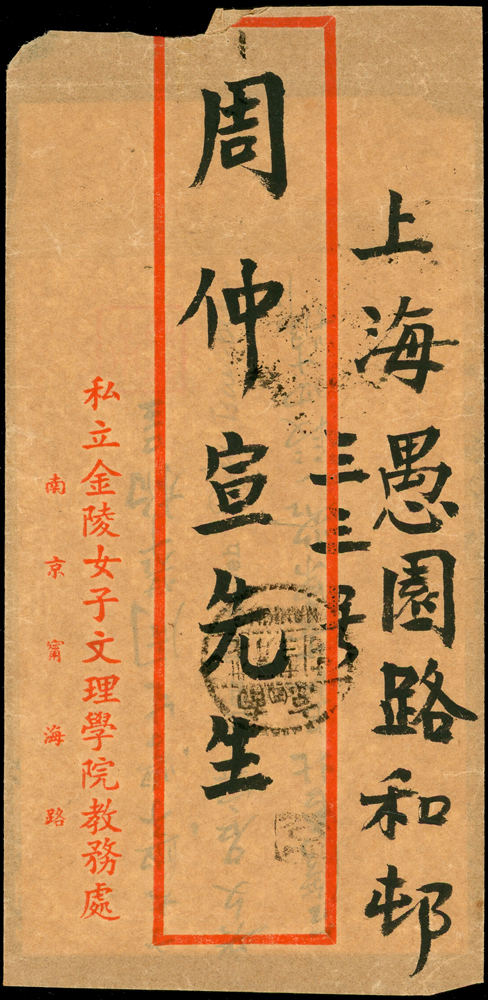 上海愚園路和邨
三三号
周仲宣先生
私立金陵女子文理學院教務處
南京甯海路